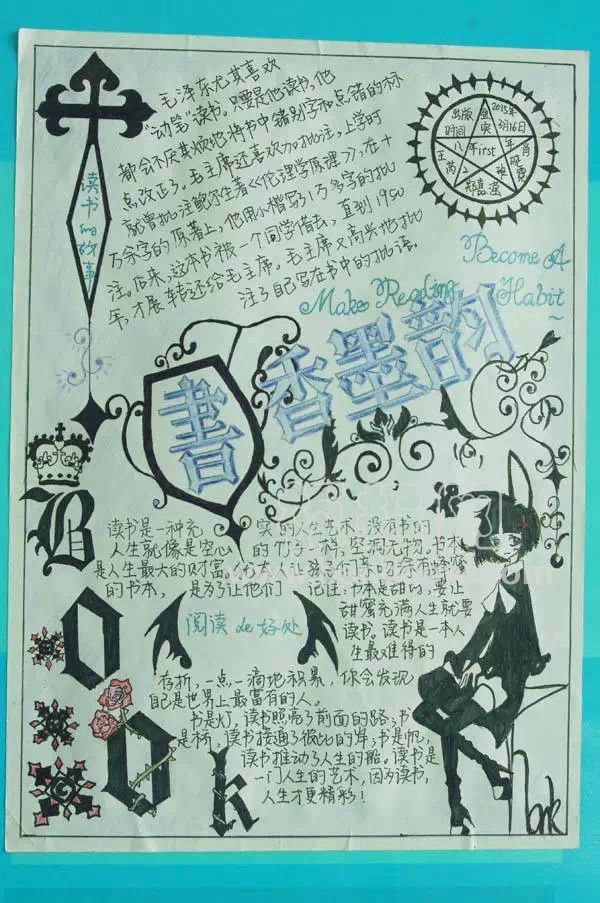 读书的故事
毛泽东尤其喜欢
“动笔”读书。只要是他读书，他
都会不厌其烦地将书中错别字和点错的标
点改正了。毛主席还喜欢加批注，上学时
就曾批注鲍尔生著《伦理学原理》，在十
万余字的原著上，他用小楷写了1万多字的批
注。后来，这本书被一个同学借去，直到1950
年，才展转还给毛主席。毛主席又高兴地批
注了自己写在书中的批语。
出版
时间
2015年
3月16日
First
Become A
Make Reading Habit
書香墨韵
Book
读书是一种充实的人生艺术。没有书的
人生就像是空心的竹子一样，空洞无物。书本
是人生最大的财富。犹太人让孩子们亲吻涂有蜂蜜
的书本，是为了让他们记住：书本是甜的，要让
甜蜜充满人生就要
读书。读书是一本人
生最难得的
阅读de好处
存折，一点一滴地积累，你会发现
自己是世界上最富有的人。
书是灯，读书照亮了前面的路；书
是桥，读书接通了彼此的岸；书是帆，
读书推动了人生的船。读书是
一门人生的艺术，因为读书，
人生才更精彩！